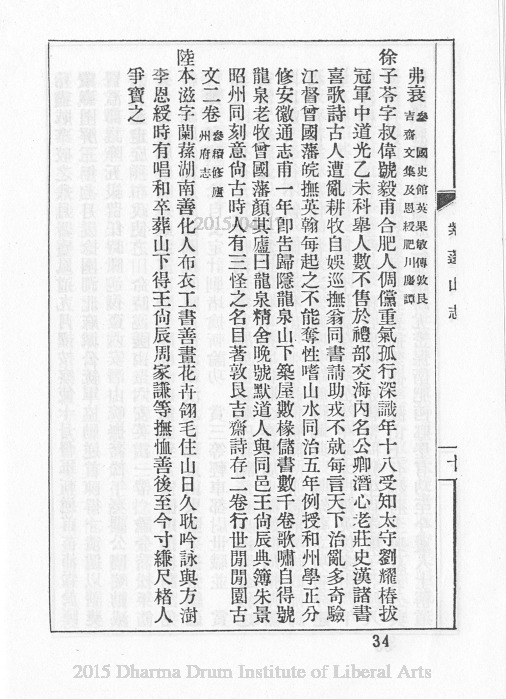 弗衰參國史館英果敏傳敦艮
吉齋文集及恩綬肥川廬譚
徐子苓字叔偉號毅甫合肥人倜儻重氣孤行深識年十八受知太守劉耀椿拔
冠軍中道光乙未科舉人數不售於禮部交海內名公卿潛心老莊史漢諸書
喜歌詩古人遭亂耕牧自娛巡撫翁同書請助戎不就每言天下治亂多奇驗
江督曾國藩皖撫英翰每起之不能奪性嗜山水同治五年例授和州學正分
修安徽通志甫一年卽告歸隱龍泉山下築屋數椽儲書數千卷歌嘯自得號
龍泉老牧曾國藩顏其廬曰龍泉精舍晚號默道人與同邑王尙辰典簿朱景
昭州同刻意尙古時人有三怪之名目著敦艮吉齋詩存二卷行世閒閒園古
文二卷參續修廬
州府志
陸本滋字蘭蓀湖南善化人布衣工書善畫花卉翎毛住山日久耽吟詠與方澍
李恩綬時有唱和卒葬山下得王尙辰周家謙等撫恤善後至今寸縑尺楮人
爭寶之
紫蓬山志
十
34
2015/04/19
2015 Dharma Drum Institute of Liberal Arts